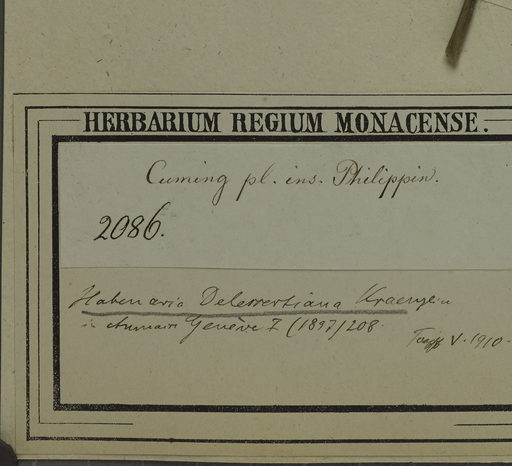 HERBARIUM REGIUM MONACENSE.
Cuming pl. ins. Philippin.
2086.
Habenaria Delessertiana Kraenzlin
in Annuair Genève I (1897) 208.
V. 1910.